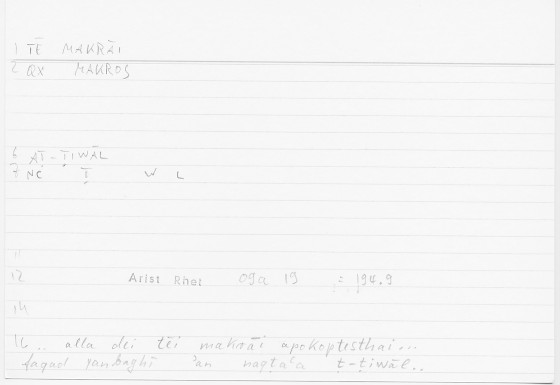 1 TĒ MAKRĀI
2 QX MAKROS
6 AṬ-ṬIWĀL
7 NC Ṭ W L
11
12 Arist Rhet 09a 19 = 194.9
14
16 .. alla dei tēi makrāi apokoptesthai...
faqad yanbaghī 'an naqṭa'a ṭ-ṭiwāl..